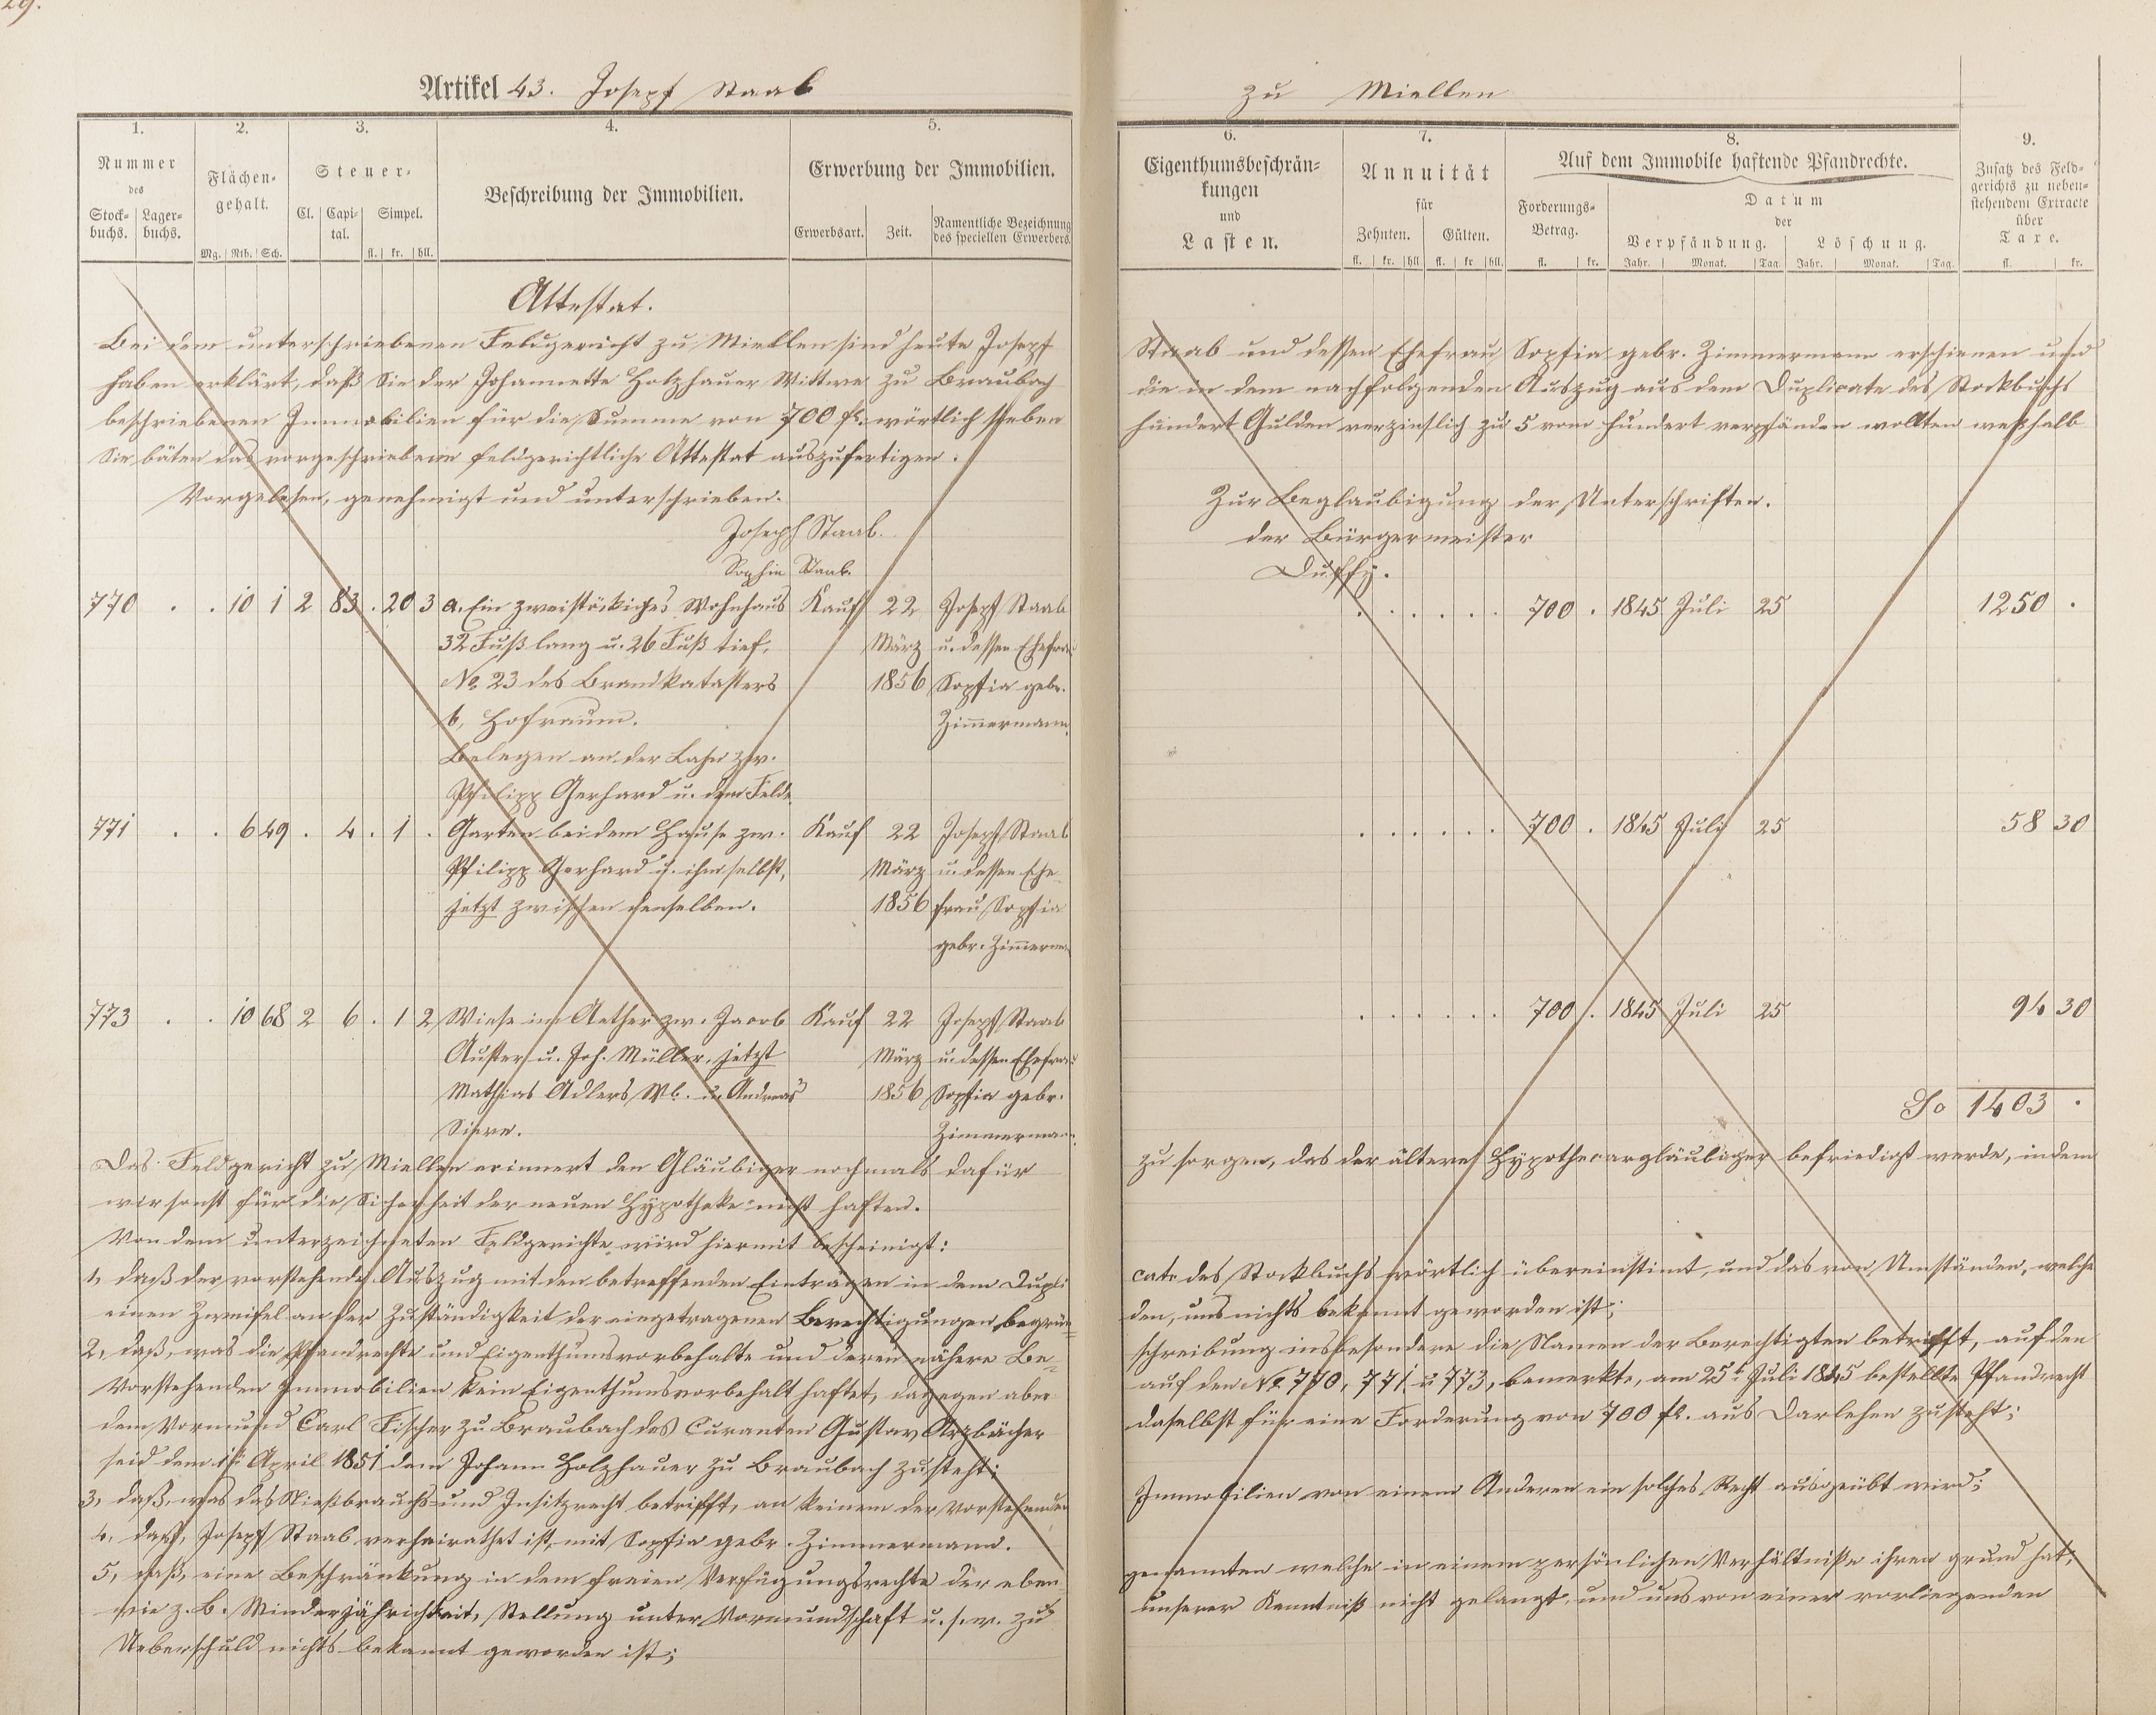 29.
Artikel 43. Joseph Staab zu Miellen
1. 2. 3. 4. 5. 6. 7. 8. 9.
Nummer des
Stock-buchs. Lager-buchs.
Flächen-gehalt.
Mg. Rth. Sch.
Steuer-
Cl. Capi-tal. Simpel.
fl. kr. hll.
Beschreibung der Immobilien.
Erwerbung der Immobilien.
Erwerbsart. Zeit. Namentliche Bezeichnung des speciellen Erwerbers.
Eigenthumsbeschrän-
kungen
und
Lasten.
Annuität
für
Zehnten. Gülten.
fl. kr. hll. fl. kr. hll.
Auf dem Immobile haftende Pfandrechte.
Forderungs-Betrag.
fl. kr.
Datum
der
Verpfändung. Löschung.
Jahr. Monat. Tag. Jahr. Monat. Tag.
Zusatz des Feld-
gerichts zu neben-
stehendem Extracte
über
Taxe.
fl. kr.
Attestat.
Bei dem unterschriebenen Feldgericht zu Miellen sind heute Joseph Staab und dessen Ehefrau Sophia gebr. Zimmermann erschienen und
haben erklärt, daß Sie der Johannette Holzhauer Wittwe zu Braubach die in dem nachfolgenden Auszug aus dem Duplicate des Stockbuchs
beschriebenen Immobilien für die Summe von 700 fl. wörtlich sieben hundert Gulden verzinslich zu 5 vom hundert verpfänden wollten weßhalb
Sie bäten das vorgeschriebene feldgerichtliche Attestat auszufertigen.
Vorgelesen, genehmigt und unterschrieben. Zur Beglaubigung der Unterschriften.
Joseph Staab. der Bürgermeister
Sophia Staab. Duffy.
770 . . 10 1 2 83 . 20 3 a. Ein zweistöckiges Wohnhaus Kauf 22 Joseph Staab . . . . . . 700 . 1845 Juli 25 1250 .
32 Fuß lang u. 26 Fuß tief, März u. dessen Ehefrau
No. 23 des Brandkatasters 1856 Sophia gebr.
b, Hofraum. Zimmermann.
Belegen an der Lahn zw.
Philipp Gerhard u. dem Felde.
771 . . 6 49 . 4 . 1 . Garten bei dem Hause zw. Kauf 22 Joseph Staab . . . . . . 700 . 1845 Juli 25 58 30
Philipp Gerhard u. ihm selbst, März u. dessen Ehe
jetzt zwischen denselben. 1856 frau Sophia
gebr. Zimmerm
773 . . 10 68 2 6 . 1 2 Wiese im Aether zw. Jacob Kauf 22 Joseph Staab . . . . . . 700 . 1845 Juli 25 94 30
Auster u. Joh. Müller, jetzt März u. dessen Ehefrau
Mathias Adlers Wb. u. Andreas 1856 Sophia gebr. 1403 .
Zimmermann.
Das Feldgericht zu Miellen erinnert den Gläubiger nochmals dafür zu sorgen, das der ältere Hypothecargläubiger befriedigt werde, indem
wir sonst für die Sicherheit der neuen Hypotheke nicht haften.
Von dem unterzeichneten Feldgerichte wird hiermit bescheinigt:
1, daß der vorstehende Auszug mit den betreffenden Einträgen in dem Dupli cate des Stockbuchs wörtlich übereinstimt, und das von Umständen, welche
einen Zweifel an der Zuständigkeit der eingetragenen Berechtigungen begrün= den, uns nichts bekannt geworden ist;
2, daß, was die Pfandrechte und Eigenthumsvorbehalte und deren nähere Be= schreibung insbesondere die Namen der Berechtigten betrifft, auf den
Vorstehenden Immobilien kein Eigenthumsvorbehalt haftet, dagegen aber auf den No. 770, 771 u 773, bemerkte, am 25t Juli 1845 bestellte Pfandrecht
dem Vormund Carl Fischer zu Braubach des Curanten Gustav Arzbächer daselbst für eine Forderung von 700 fl. aus Darlehen zusteht;
seid dem 1t April 1851 dem Johann Holzhauer zu Braubach zusteht;
3, daß, was das Nießbrauchs= und Insitzrecht betrifft, an keinem der Vorstehenden Immobilien von einem Anderen ein solches Recht ausgeübt wird;
4, daß, Joseph Staab verheirathet ist, mit Sophia gebr. Zimmermann.
5, daß, eine Beschränkung in dem freien Verfügungsrechte der eben genannten welche in einem persönlichen Verhältniße ihren grund hat,
wie z. b. Minderjährichkeit, Stellung unter Vormundschaft u. s. w. zu unserer Kenntniß nicht gelangt, und uns von einer vorliegenden
Ueberschuld nichts bekannt geworden ist;